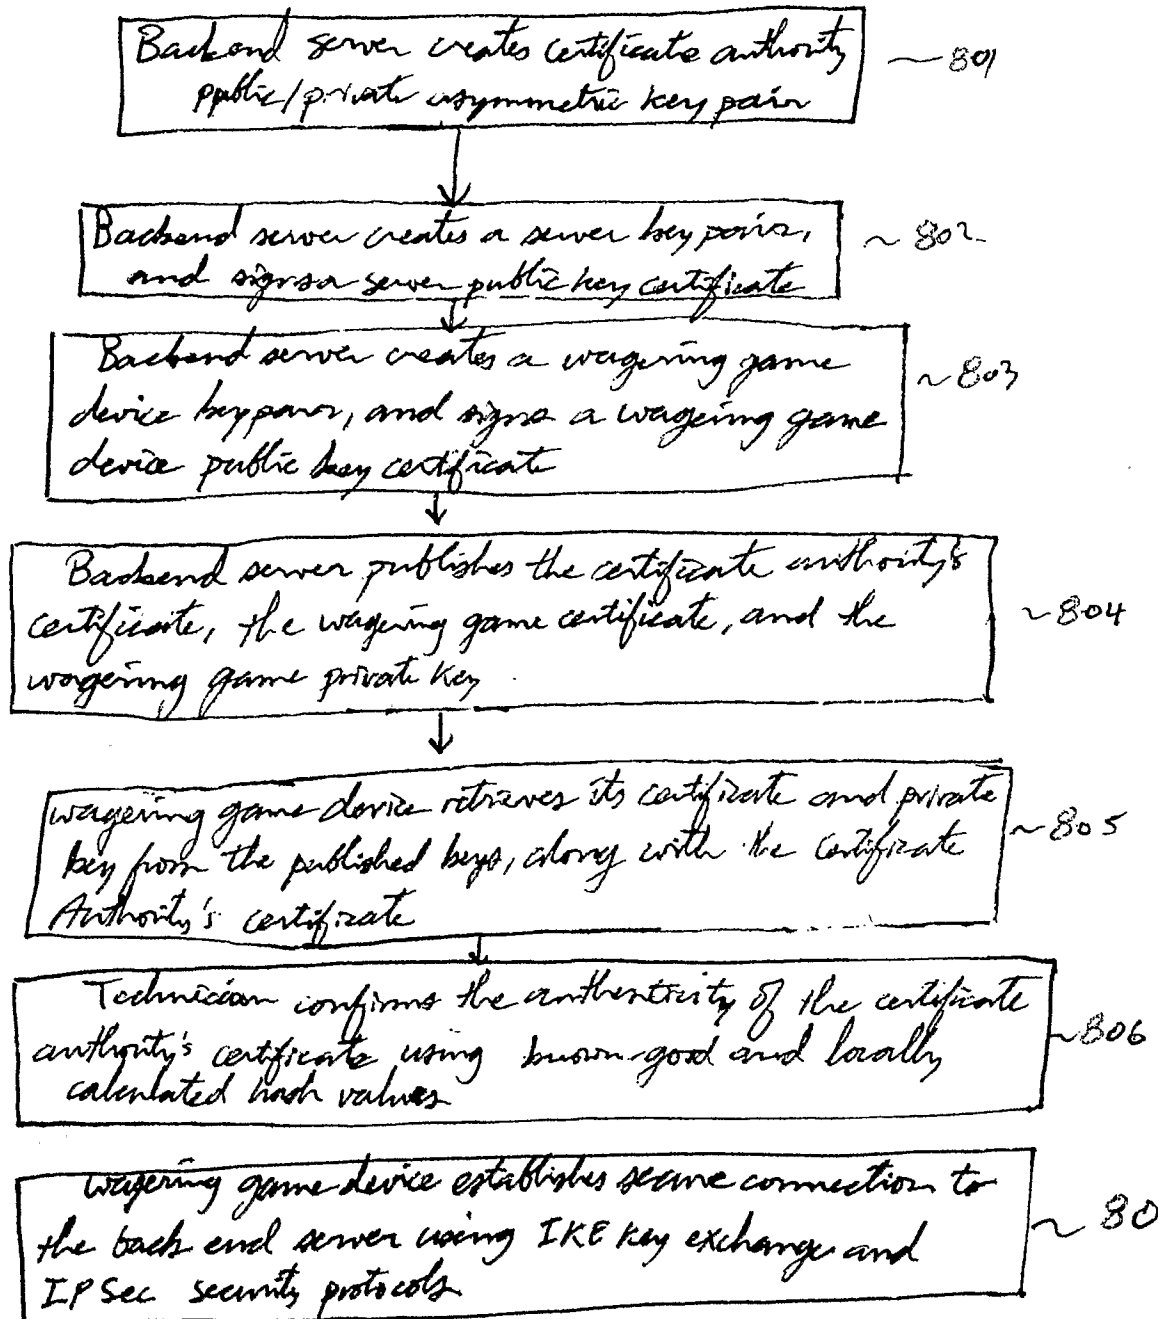 Backend server creates certificate authority ~801
ppublic/private asymmetric key pair
Backend server creates a server key pair, ~802
and signs a server public key certificate
Backend server creates a wagering game
device key pair, and signs a wageing game ~803
device public key certificate
Backend server publishes the certificate authority's
certificate, the wagering game certificate, and the ~804
wagering game private key.
wagering game device retrieves its certificate and private
key from the published keys, along with the Certificate ~805
Authority's certificate
Technician confirms the authenticity of the certificate
authority's certificate using known-good and locally ~806
calculated hash values
wagering game device establishes secure connection to
the back end server using IKE key exchange and ~80
IPSec security protocols.